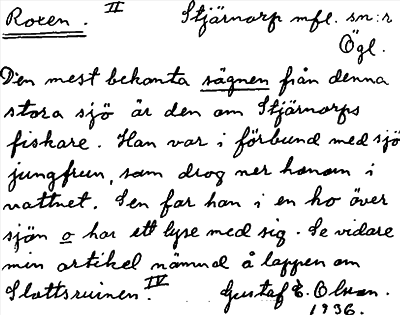 Roxen. II Stjärnorp mfl. sn:r
Ögl.
Den mest bekanta sägnen från denna
stora sjö är den om Stjärnorps
fiskare. Han var i förbund med sjö
jungfrun, som drog ner honom i
vattnet. Sen far han i en ho över
sjön o har ett lyse med sig. Se vidare
min artikel nämnd å lappen om
Slottsruinen. IV Gustaf E. Olsson.
1936.